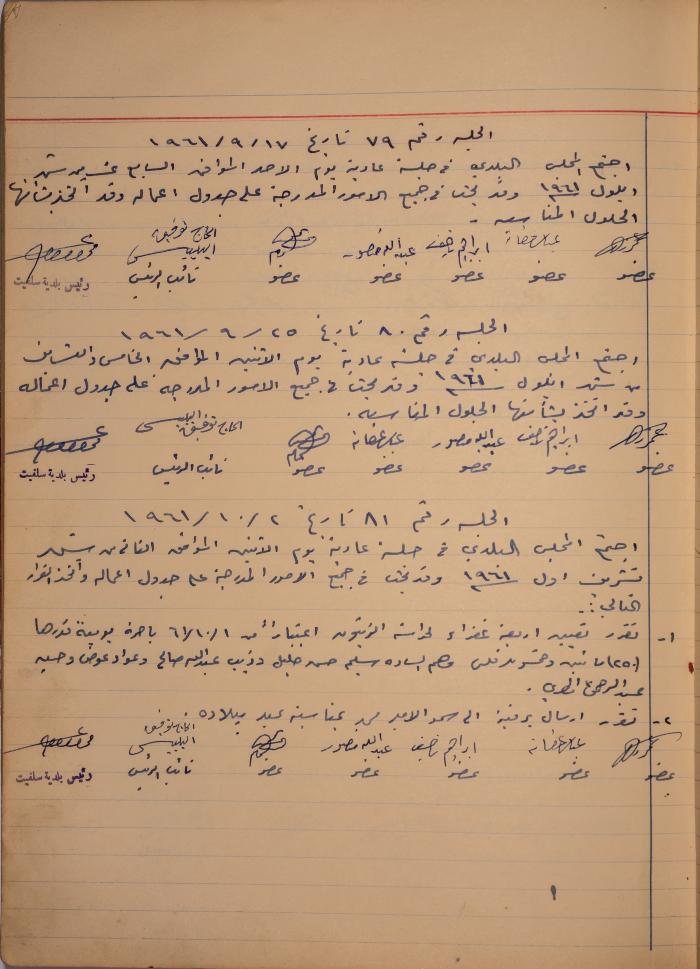 الجلسه رقم ٧٩ تاريخ ١٩٦١/٩/١٧
اجتمع المجلس البلدي في جلسة عادية يوم الاحد الموافق السابع عشر من شهر
ايلول ١٩٦١ وقد بحث في جميع الامور المدرجة على جدول اعماله وقد اتخذ بشأنها
الحلول المناسبه -
عبدالله منصور ابراهيم الحاج توفيق
عضو عضو عضو عضو عضو نائب الرئيس رئيس بلدية سلفيت
الجلسه رقم ٨٠ تاريخ ١٩٦١/٩/٢٥
اجتمع المجلس البلدي في جلسة عادية يوم الاثنين الموافق الخامس والعشرين
من شهر ايلول ١٩٦١ وقد بحث في جميع الامور المدرجه على جدول اعماله
وقد اتخذ بشأنها الحلول المناسبه .
ابراهيم عبدالله منصور الحاج توفيق
عضو عضو عضو عضو عضو نائب الرئيس رئيس بلدية سلفيت
الجلسه رقم ٨١ تاريخ ١٩٦١/١٠/٢
اجتمع المجلس البلدي في جلسة عادية يوم الاثنين الموافق الثاني من شهر
تشرين اول ١٩٦١ وقد بحث في جميع الامور المدرجة على جدول اعماله واتخذ القرار
التالي :-
١- تقرر تعيين اربعة خفراء لحراسة الزيتون اعتبارا من ٦١/١٠/١ باجرة يومية قدرها
(٢٥٠) مائتين وخمسون فلس وهم الساده سليم حسن خليل وذيب عبدالله صالح وعواد عوض وحسين
عبد الرحمن
٢- تقرر ارسال برقية الى سمو الامير محمد بمناسبة عيد ميلاده
ابراهيم عبدالله منصور الحاج توفيق
عضو عضو عضو عضو عضو نائب الرئيس رئيس بلدية سلفيت